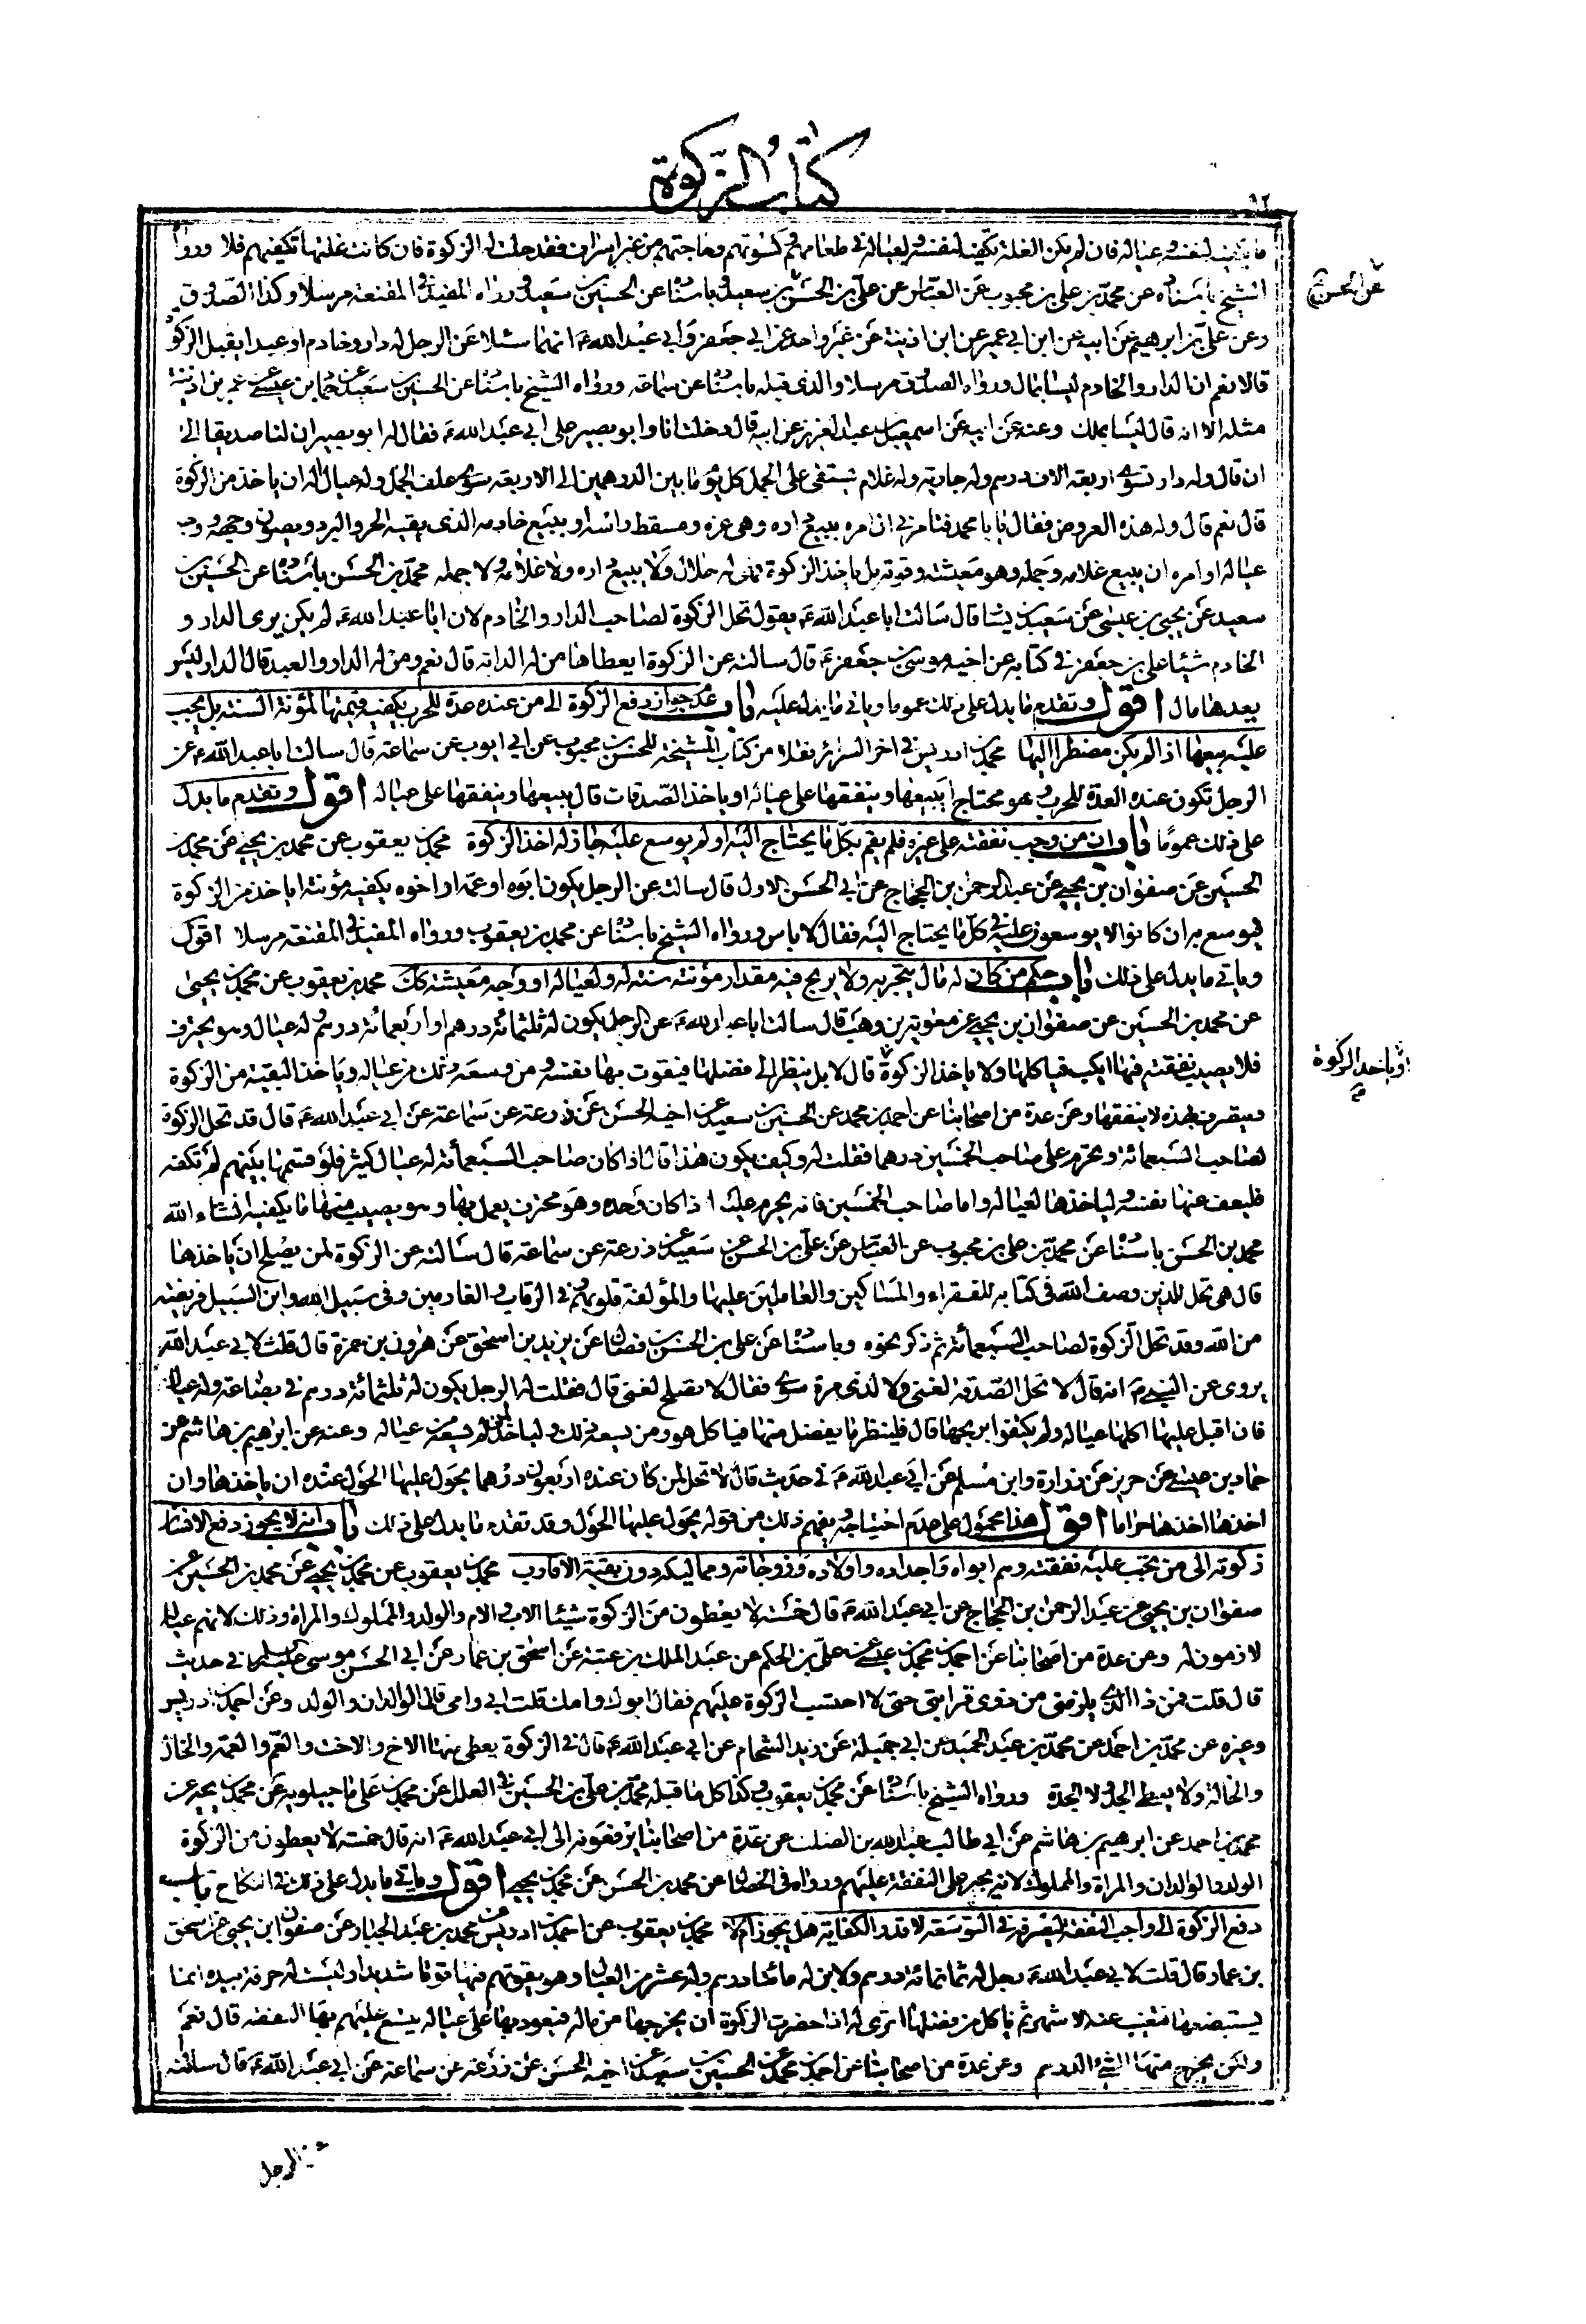 كتاب الزكوة
١٢
ما يكفيه لنفسه و عياله فان لم تكن الغلة تكفيه لنفسه و لعياله في طعامهم و كسوتهم و حاجتهم من غير اسراف فقد حلت له الزكوة فان كانت غلتها تكفيهم فلا و رواه
الشيخ باسناده عن محمد بن علي بن محبوب عن العباس عن علي بن الحسن عن سعيد و باسناده عن الحسين بن سعيد و رواه المفيد في المقنعة مرسلا و كذا الصدوق
عن الحسن
و عن علي بن ابرهيم عن ابيه عن ابن ابي عمير عن ابن اذينة عن غير واحد عن ابي جعفر و ابي عبد الله ع انهما سئلا عن الرجل له دار و خادم او عبد ايقبل الزكوة
قالا نعم ان الدار و الخادم ليسا بمال و رواه الصدوق مرسلا و الذي قبله باسناده عن سماعة و رواه الشيخ باسناده عن الحسين بن سعيد عن حماد بن عيسى عن عمر بن اذينة
مثله الا انه قال ليسا بملك و عنه عن ابيه عن اسمعيل بن عبد العزيز عن ابيه قال دخلت انا و ابو بصير على ابي عبد الله ع فقال له ابو بصير ان لنا صديقا الى
ان قال و له دار تسوى اربعة الاف درهم و له جارية و له غلام يستقى على الجمل كل يوم ما بين الدرهمين الى الاربعة سوى علف الجمل و له عيال اله ان ياخذ من الزكوة
قال نعم قال و له هذه العروض فقال يا با محمد فتامرني ان امره ببيع داره و هي عزه و مسقط راسه او ببيع خادمه الذي يقيه الحر و البرد و يصون وجهه و وجه
عياله او امره ان يبيع غلامه و جمله و هو معيشته و قوته بل ياخذ الزكوة فهي له حلال و لا يبيع داره و لا غلامه و لا جمله محمد بن الحسن باسناده عن الحسين بن
سعيد عن يحيى بن عيسى عن سعيد بن يسار قال سالت ابا عبد الله ع يقول تحل الزكوة لصاحب الدار و الخادم لان ابا عبد الله ع لم يكن يرى الدار و
الخادم شيئا علي بن جعفر في كتابه عن اخيه موسى بن جعفر ع قال سالته عن الزكوة ايعطاها من له الدابة قال نعم و من له الدار و العبد قال الدار ليس
بعدها مال اقول و تقدم ما يدل على ذلك عموما و ياتي ما يدل عليه باب عدم جواز دفع الزكوة الى من عنده عدة للحرب يكفيه قيمتها لمؤنة السنة بل يجب
عليه بيعها اذا لم يكن مضطرا اليها محمد بن ادريس في اخر السرائر نقلا من كتاب المشيخة للحسن بن محبوب عن ابي ايوب عن سماعة قال سالت ابا عبد الله ع عن
الرجل تكون عنده العدة للحرب و هو محتاج ايبيعها و ينفقها على عياله او ياخذ الصدقات قال يبيعها و ينفقها على عياله اقول و تقدم ما يدل
على ذلك عموما باب ان من وجب نفقته على غيره فلم يقم بكل ما يحتاج اليه او لم يوسع عليه جاز له اخذ الزكوة محمد بن يعقوب عن محمد بن يحيى عن محمد بن
الحسين عن صفوان بن يحيى عن عبد الرحمن بن الحجاج عن ابي الحسن الاول قال سالته عن الرجل يكون ابوه او عمه او اخوه يكفيه مؤنته اياخذ من الزكوة
فيوسع به ان كانوا لا يوسعون عليه في كل ما يحتاج اليه فقال لا باس و رواه الشيخ باسناده عن محمد بن يعقوب و رواه المفيد في المقنعة مرسلا اقول
و ياتي ما يدل على ذلك باب حكم من كان له مال يتجر به و لا يربح فيه مقدار مؤنة سنة له و لعياله او وجه معيشة كك محمد بن يعقوب عن محمد بن يحيى
عن محمد بن الحسين عن صفوان بن يحيى عن معوية بن وهب قال سالت ابا عبد الله ع عن الرجل يكون له ثلثمائة درهم او اربعمائة درهم و له عيال و هو يحترف
فلا يصيب نفقته فيها ايكب فياكلها و لا ياخذ الزكوة قال لا بل ينظر الى فضلها فيقوت بها نفسه و من وسعه ذلك من عياله و ياخذ البقية من الزكوة
او ياخذ الزكوة
و يتصرف بهذه لا ينفقها و عن عدة من اصحابنا عن احمد بن محمد عن الحسين بن سعيد عن اخيه الحسن عن زرعة عن سماعة عن ابي عبد الله ع قال قد تحل الزكوة
لصاحب السبعمائة و تحرم على صاحب الخمسين درهما فقلت له و كيف يكون هذا قال اذا كان صاحب السبعمائة له عيال كثير فلو قسمها بينهم لم تكفه
فليعف عنها نفسه و لياخذها لعياله و اما صاحب الخمسين فانه يحرم عليه اذا كان وحده و هو محترف يعمل بها و هو يصيب منها ما يكفيه انشاء الله
محمد بن الحسن باسناده عن محمد بن علي بن محبوب عن العباس عن علي بن الحسن عن سعيد عن زرعة عن سماعة قال سالته عن الزكوة لمن يصلح ان ياخذها
قال هي تحل للذين وصف الله في كتابه للفقراء و المساكين و العاملين عليها و المؤلفة قلوبهم و في الرقاب و الغارمين و في سبيل الله و ابن السبيل فريضة
من الله و قد تحل الزكوة لصاحب السبعمائة ثم ذكر نحوه و باسناده عن علي بن الحسن بن فضال عن يزيد بن اسحق عن هرون بن حمزة قال قلت لابي عبد الله
يروى عن النبي ص انه قال لا تحل الصدقة لغني و لا لذي مرة سوى فقال لا تصلح لغني قال فقلت له الرجل يكون له ثلثمائة درهم في بضاعة و له عيال
فان اقبل عليها اكلها عياله و لم يكتفوا بربحها قال فلينظر ما يفضل منها فياكل هو و من يسعه ذلك و لياخذ لمن لم يسعه من عياله و عنه عن ابرهيم بن هاشم عن
حماد بن عيسى عن حريز عن زرارة و ابن مسلم عن ابي عبد الله ع في حديث قال لا تحل لمن كان عنده اربعون درهما يحول عليها الحول عنده ان ياخذها و ان
اخذها اخذها حراما اقول هذا محمول على عدم احتياجه و يفهم ذلك من قوله يحول عليها الحول و قد تقدم ما يدل على ذلك باب انه لا يجوز دفع الانسان
زكوته الى من تجب عليه نفقته و هم ابواه و اجداده و اولاده و زوجاته و مماليكه دون بقية الاقارب محمد بن يعقوب عن محمد بن يحيى عن محمد بن الحسين عن
صفوان بن يحيى عن عبد الرحمن بن الحجاج عن ابي عبد الله ع قال خمسة لا يعطون من الزكوة شيئا الاب و الام و الولد و المملوك و المراة و ذلك لانهم عياله
لازمون له و عن عدة من اصحابنا عن احمد بن محمد بن عيسى عن علي بن الحكم عن عبد الملك بن عتبة عن اسحق بن عمار عن ابي الحسن موسى عليه السلم في حديث
قال قلت فمن ذا الذي يلزمني من ذوي قرابتي حتى لا احتسب الزكوة عليهم فقال ابوك و امك قلت ابي و امي قال الوالدان و الولد و عن احمد بن ادريس
و غيره عن محمد بن احمد عن محمد بن عبد الحميد عن ابي جميلة عن زيد الشحام عن ابي عبد الله ع قال في الزكوة يعطى منها الاخ و الاخت و العم و العمة و الخال
و الخالة و لا يعطى الجد و لا الجدة و رواه الشيخ باسناده عن محمد بن يعقوب و كذا كل ما قبله محمد بن علي بن الحسين في العلل عن محمد بن علي ماجيلويه عن محمد بن يحيى عن
محمد بن احمد عن ابرهيم بن هاشم عن ابي طالب عبد الله بن الصلت عن عدة من اصحابنا يرفعونه الى ابي عبد الله ع انه قال خمسة لا يعطون من الزكوة
الولد و الوالدان و المراة و المملوك لانه يجبر على النفقة عليهم و رواه في الخصال عن محمد بن الحسن عن محمد بن يحيى اقول و ياتي ما يدل على ذلك في النكاح باب
دفع الزكوة الى واجب النفقة ليصرفه في التوسعة لا قدر الكفاية هل يجوز ام لا محمد بن يعقوب عن احمد بن ادريس عن محمد بن عبد الجبار عن صفوان ابن يحيى عن اسحق
بن عمار قال قلت لابي عبد الله ع رجل له ثمانمائة درهم و لابن له مائتا درهم و له عشر من العيال و هو يقوتهم فيها قوتا شديدا و ليست له حرفة بيده انما
يستبضعها فتغيب عنه الاشهر ثم ياكل من فضلها اترى له اذا حضرت الزكوة ان يخرجها من ماله فيعود بها على عياله يتسع عليهم بها النفقة قال نعم
و لكن يخرج منها الشيء الدرهم و عن عدة من اصحابنا عن احمد بن محمد عن الحسين بن سعيد عن اخيه الحسن عن زرعة عن سماعة عن ابي عبد الله ع قال سالته
عن الرجل